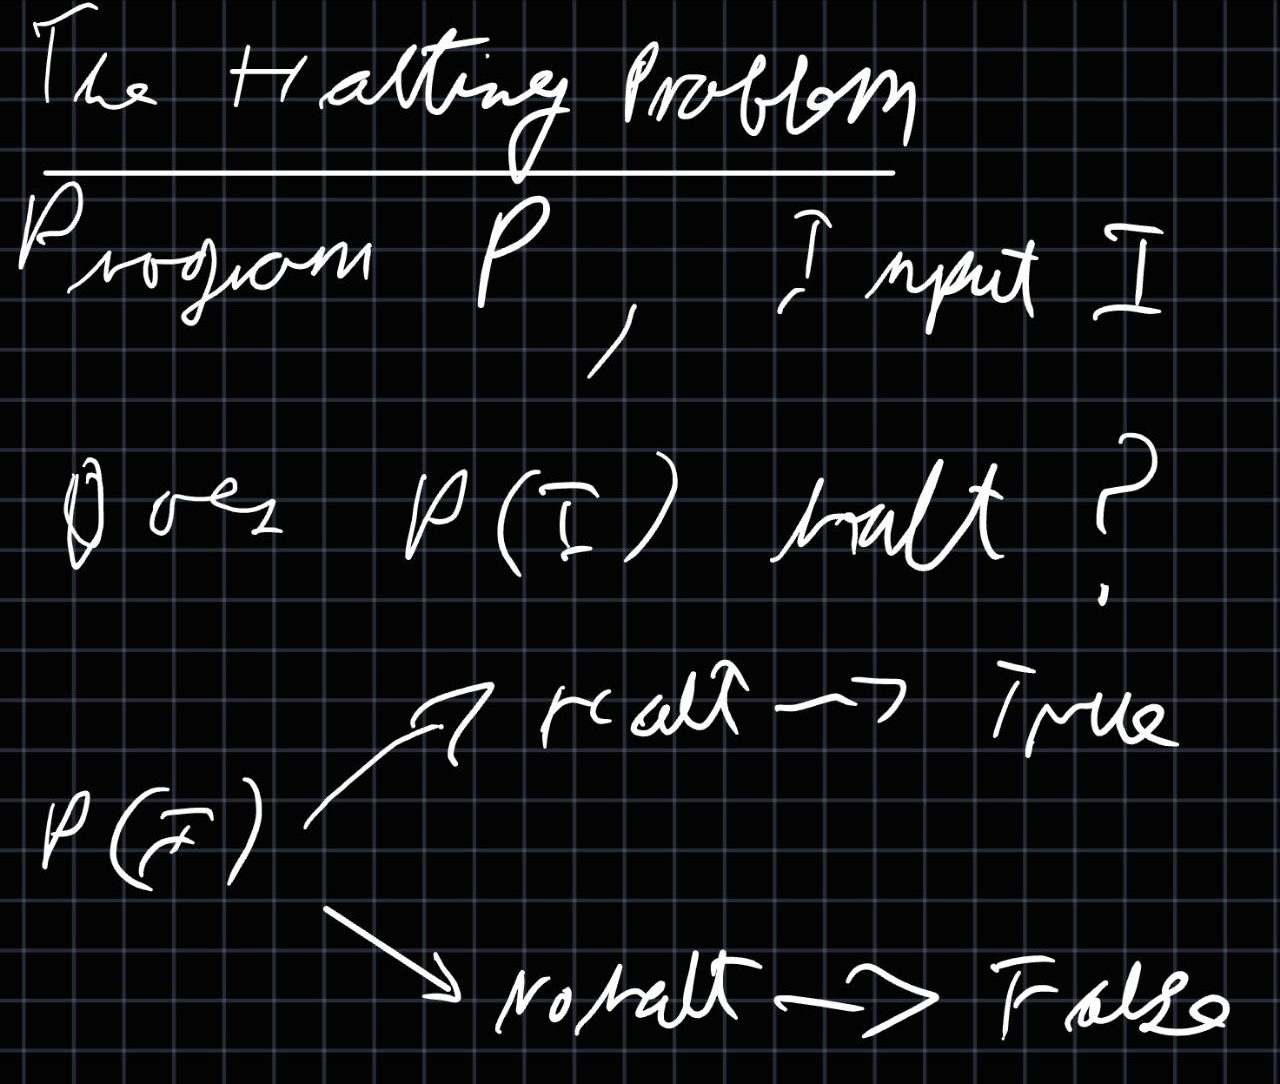 The Halting Problem
Program P, Input I
Does P(I) halt?
halt → True
P(I)
No halt → False